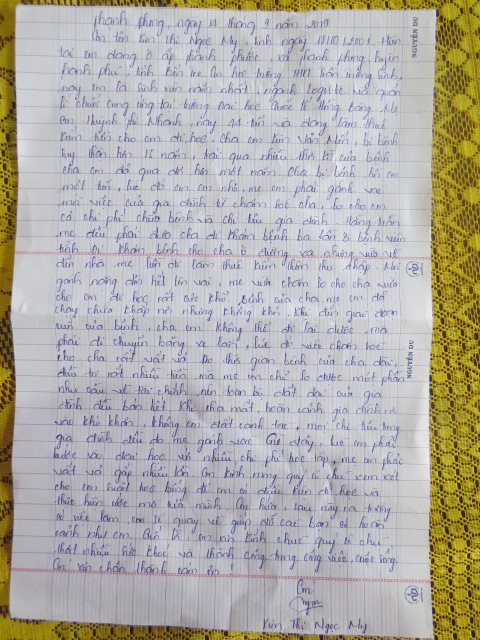 Thạnh Phong, ngày 12 tháng 9 năm 2019
Em tên Kim Thị Ngọc My, sinh ngày 2001. Hiện
tại em đang ở ấp Thạnh Phước, xã Thạnh Phong huyện
Thạnh Phú, tỉnh Bến Tre. Em học trường THPT Trần Trường Sinh,
nay em là sinh viên năm nhất, ngành Logistic và quản
lí chuỗi cung ứng tại trường Đại học Quốc tế Hồng Bàng. Mẹ
em Huỳnh Thị Nhanh, nay tuổi và đang làm thuê
kiếm tiền cho em đi học. Cha em Kim Văn bị bệnh
suy thận hơn 15 năm, trải qua nhiều thời kì của bệnh
cha em đã qua đời hơn một năm. Cha bị bệnh khi em
một tuổi, lúc đó em còn nhỏ, mẹ em phải gánh vác
mọi việc của gia đình từ chăm sóc cha, lo cho em
có chi phí chữa bệnh và chi tiêu gia đình. Hàng tuần,
mẹ đều phải đưa cha đi khám bệnh ba lần ở bệnh viện
tỉnh. Đi khám bệnh cho cha ở đường xa, nhưng vừa về
đến nhà mẹ liền đi làm thuê kiếm thêm thu nhập. Mọi
gánh nặng dồn hết lên vai, mẹ vừa chăm lo cho cha vừa
cho em đi học rất cực khổ. Bệnh của cha, mẹ em đã
chạy chữa khắp nơi nhưng không khỏi. Khi đến giai đoạn
cuối của bệnh, cha em không thể đi lại được, mà
phải di chuyển bằng xe lăn, lúc đó việc chăm sóc
cho cha rất vất vả. Do thời gian bệnh của cha dài,
điều trị rất nhiều tiền mà mẹ em chỉ lo được một phần
như cầu về tài chính, nên toàn bộ đất đai của gia
đình đều bán hết. Khi cha mất, hoàn cảnh gia đình rơi
vào khó khăn, không còn đất canh tác, mọi chi tiêu trong
gia đình đều do mẹ gánh vác. Giờ đây, lúc em phải
bước vào đại học với nhiều chi phí học tập, mẹ em phải
vất vả gấp nhiều lần. Em kính mong quý cô chú xem xét
cho em suất học bổng để em có điều kiện đi học và
thực hiện ước mơ của mình. Em hứa, sau này ra trường
có việc làm, em sẽ quay về giúp đỡ các bạn có hoàn
cảnh như em. Cuối lời, em xin kính chúc quý cô chú
thật nhiều sức khoẻ và thành công trong công việc, cuộc sống.
Em xin chân thành cảm ơn!
Em
My
Kim Thị Ngọc My
NGUYỄN DU
NGUYỄN DU